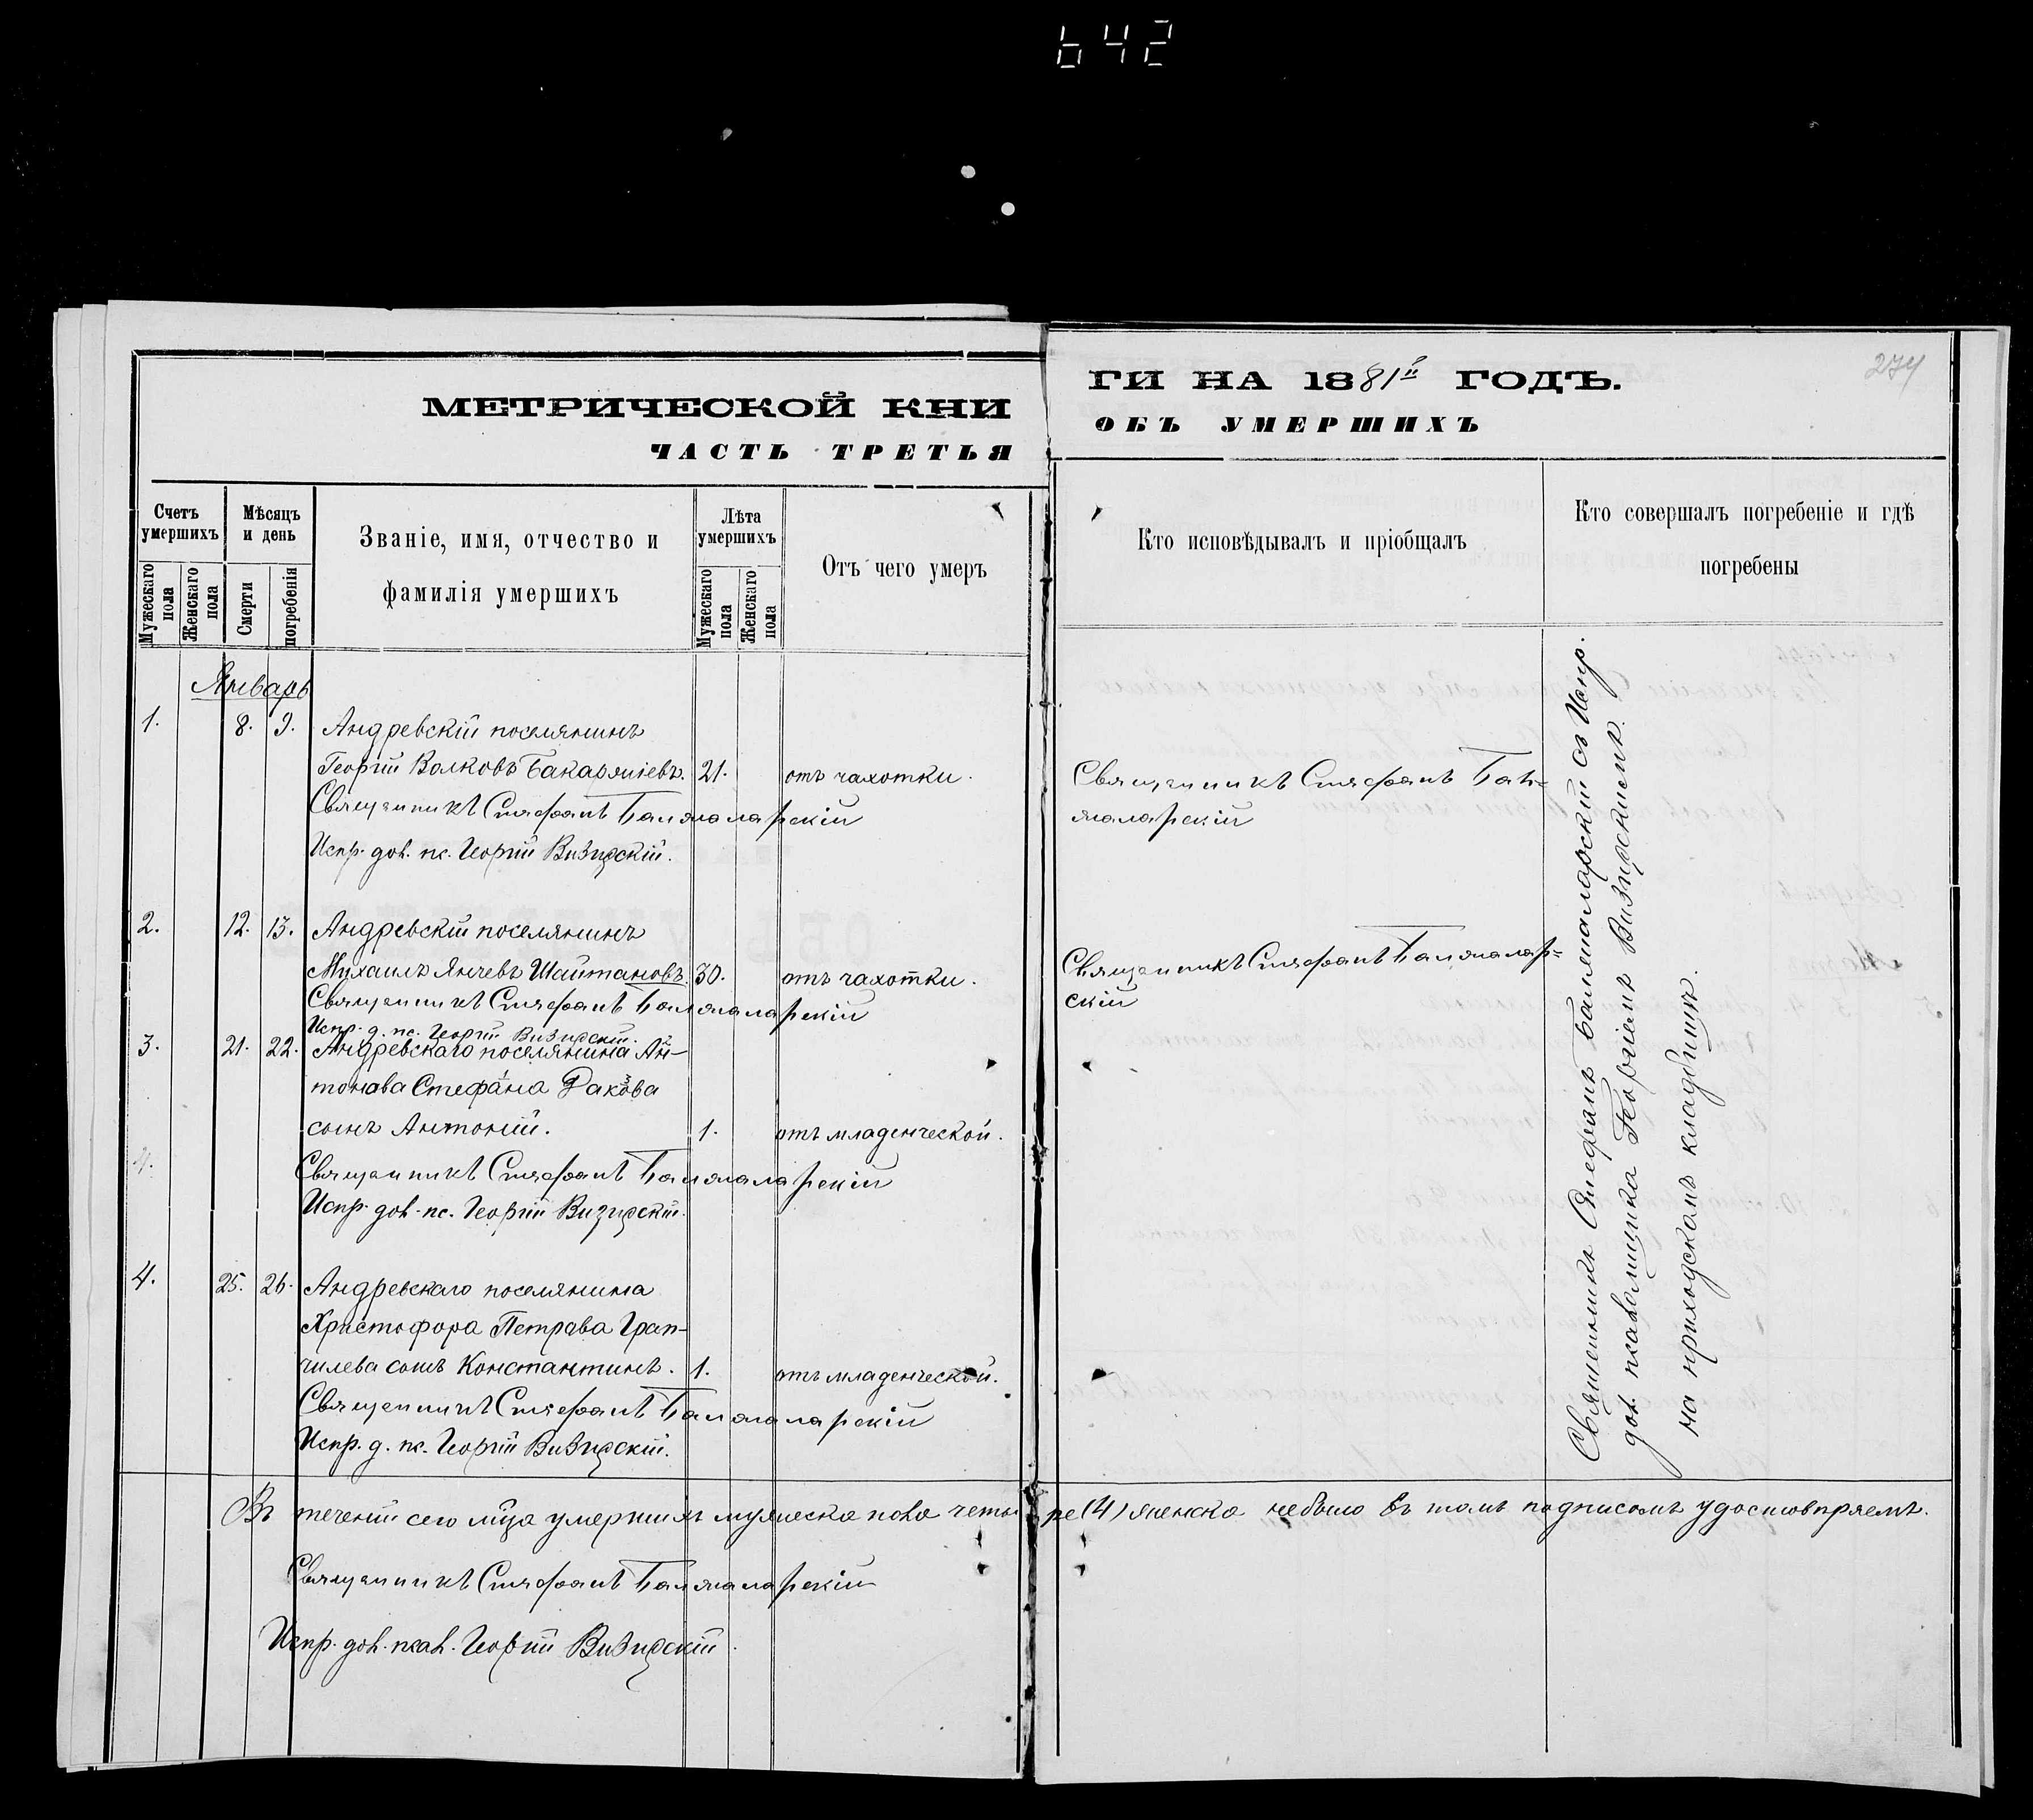 642
МЕТРИЧЕСКОЙ КНИ
ЧАСТЬ ТРЕТЬЯ
ГИ НА 1881й ГОДЪ.
ОБЪ УМЕРШИХЪ
274
Счетъ умершихъ
Мужескаго пола
Женскаго пола
Мѣсяцъ и день
Смерти
погребенія
Званіе, имя, отчество и
фамилія умершихъ
Лѣта умершихъ
Мужескаго пола
Женскаго пола
Отъ чего умеръ
Кто исповѣдывалъ и пріобщалъ
Кто совершалъ погребеніе и гдѣ
погребены
Январь
1. 8. 9. Андревскій поселянинъ
Георгій Волковъ 21. отъ чахотки.
Священникъ Стефанъ Балжаларскій
Испр. дол. пс. Георгій Визирскій.
Священникъ Стефанъ Бал=
жаларскій
2. 12. 13. Андревскій поселянинъ
Михаилъ Янчевъ Шайтановъ 30. отъ чахотки.
Священникъ Стефанъ Балжаларскій
Испр. д. пс. Георгій Визирскій.
Священникъ Стефанъ Балжалар=
скій
3. 21. 22. Андревскаго поселянина Ан-
тонава Стефана Ракова
сынъ Антоній. 1. отъ младенческой.
Священникъ Стефанъ Балжаларскій
Испр. дол. пс. Георгій Визирскій.
4. 25. 26. Андревскаго поселянина
Христофора Петрава Грап-
чилева сынъ Константинъ. 1. отъ младенческой.
Священникъ Стефанъ Балжаларскій
Испр. д. пс. Георгій Визирскій.
Священникъ Стефанъ Балжаларскій съ Испр.
дол. псаломщика Георгіемъ Визирскимъ.
на приходскомъ кладбищѣ.
Въ теченіи сего мца умершихъ мужеска пола четыре (4) женска небыло въ томъ подписомъ удостовѣряемъ.
Священникъ Стефанъ Балжаларскій
Испр. дол. псал. Георгій Визирскій.